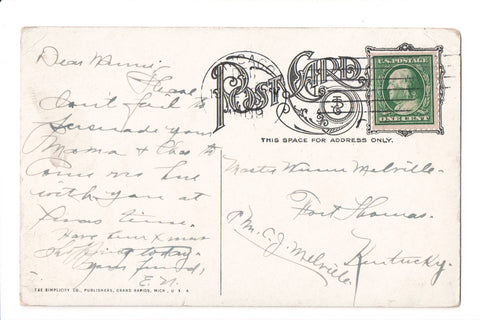 Dear Winnie,
Please
don't fail to
persuade your
Mama & Chas to
come on
with you at
Xmas time.
Have been Xmas
shopping today.
Your friend,
E. N.
THE SIMPLICITY CO., PUBLISHERS, GRAND RAPIDS, MICH., U. S. A.
POST CARD
THIS SPACE FOR ADDRESS ONLY.
U.S. POSTAGE
ONE CENT
Master Winnie Melville.
Fort Thomas.
Kentucky.
M. C. J. Melville